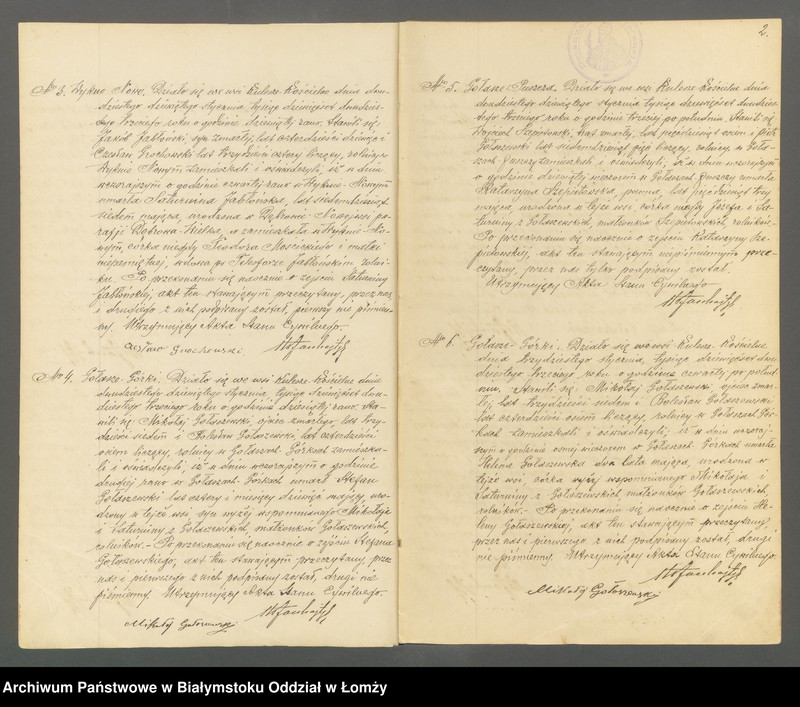 No 3. Wykno Nowe. Działo się we wsi Kulesze-Kościelne dnia dwu-
dziestego dziewiątego stycznia tysiąc dziewięćset dwudzies-
tego trzeciego roku o godzinie dziewiątej rano. Stawili się
Jakób Jabłoński, syn zmarłej, lat czterdzieści dziewięć i
Czesław Grochowski lat trzydzieści cztery liczący, rolnicy w
Wyknie Nowym zamieszkali i oświadczyli, iż w dniu
wczorajszym o godzinie czwartej rano w Wyknie-Nowym
umarła Saturnina Jabłońska, lat siedemdziesiąt
siedem mająca, urodzona w Dąbrowie pa-
rafji Dąbrowa-Wielka, a zamieszkała w Wyknie-No-
wym, córka niegdy Teodora Mościckiego i matki
niepamiętnej, wdowa po Teleforze Jabłońskim rolni-
ku. Po przekonaniu się naocznie o zejściu Saturniny
Jabłońskiej, akt ten stawającym przeczytany, przez nas
i drugiego z nich podpisany został, pierwszy nie piśmien-
ny. Utrzymujący Akta Stanu Cywilnego.
Czesław Grochowski
No 4. Gołasze-Górki. Działo się we wsi Kulesze-Kościelne dnia
dwudziestego dziewiątego stycznia, tysiąc dziewięćset dwu-
dziestego trzeciego roku o godzinie dziesiątej rano. Sta-
wili się Mikołaj Gołaszewski, ojciec zmarłego, lat trzy-
dzieści siedem i Bolesław Gołaszewski, lat czterdzieści
osiem liczący, rolnicy w Gołaszach-Górkach zamieszka-
li i oświadczyli, iż w dniu wczorajszym o godzinie
drugiej rano w Gołaszach Górkach umarł Stefan
Gołaszewski lat cztery i miesięcy dziewięć mający, uro-
dzony w tejże wsi, syn wyżej wspomnianego Mikołaja
i Saturniny z Gołaszewskich, małżonków Gołaszewskich,
rolników.- Po przekonaniu się naocznie o zejściu Stefana
Gołaszewskiego, akt ten stawającym przeczytany, przez
nas i pierwszego z nich podpisany został, drugi nie
piśmienny. Utrzymujący Akta Stanu Cywilnego.
Mikołaj Gołaszewski
2.
No 5. Gołasze-Puszcza. Działo się we wsi Kulesze-Kościelne dnia
dwudziestego dziewiątego stycznia tysiąc dziewięćset dwudzies-
tego trzeciego roku o godzinie trzeciej po południu. Stawili się
Wojciech Szepietowski, brat zmarłej, lat pięćdziesiąt osiem i Piotr
Gołaszewski lat siedemdziesiąt pięć liczący, rolnicy, w Goła-
szach-Puszczy zamieszkali i oświadczyli, iż w dniu wczorajszym
o godzinie dziewiątej wieczorem w Gołaszach-Puszczy umarła
Katarzyna Szepietowska, panna, lat pięćdziesiąt trzy
mająca, urodzona w tejże wsi, córka niegdy Józefa i Sa-
turniny z Gołaszewskich, małżonków Szepietowskich, rolników.-
Po przekonaniu się naocznie o zejściu Katarzyny Sze-
pietowskiej, akt ten stawającym niepiśmiennym prze-
czytany, przez nas tylko podpisany został.
Utrzymujący Akta Stanu Cywilnego
No 6. Gołasze-Górki. Działo się we wsi Kulesze-Kościelne
dnia trzydziestego stycznia, tysiąc dziewięćset dwu-
dziestego trzeciego, roku o godzinie czwartej po połud-
niu. Stawili się Mikołaj Gołaszewski ojciec zmar-
łej, lat trzydzieści siedem i Bolesław Gołaszewski
lat czterdzieści osiem liczący, rolnicy w Gołaszach Gór-
kach zamieszkali i oświadczyli, iż w dniu wczoraj-
szym o godzinie ósmej wieczorem w Gołaszach-Górkach umarła
Helena Gołaszewska dwa lata mająca, urodzona w
tejże wsi, córka wyżej wspomnianego Mikołaja i
Saturniny z Gołaszewskich małżonków Gołaszewskich,
rolników.- Po przekonaniu się naocznie o zejściu He-
leny Gołaszewskiej, akt ten stawającym przeczytany,
przez nas i pierwszego z nich podpisany został, drugi
nie piśmienny. Utrzymujący Akta Stanu Cywilnego.
Mikołaj Gołaszewski
Archiwum Państwowe w Białymstoku Oddział w Łomży